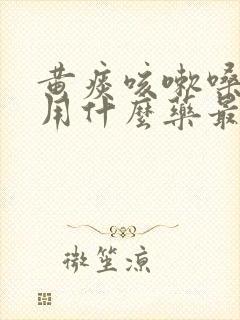 黄痰咳嗽嗓
用什麼藥最
微笙凉